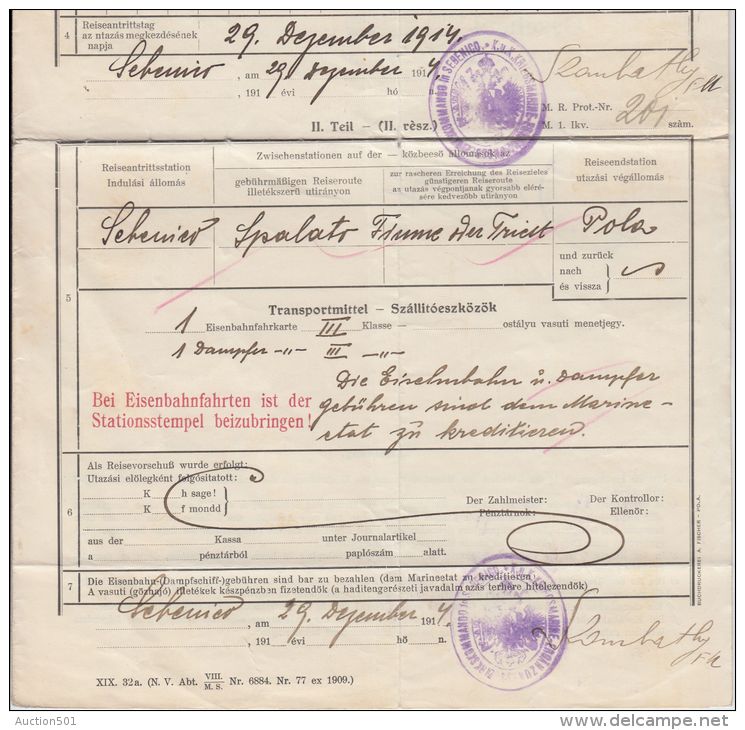 4 Reiseantrittstag
az ntazás megkezdésének
napja
29. Dezember 1914.
Sebenico, am 29. Dezember 1914
, 191 évi hó
Szombathy
M. R. Prot.-Nr. 201
M. 1. Ikv. szám.
II. Teil – (II. rèsz.)
Reiseantrittsstation
Indulási állomás
Zwischenstationen auf der — közbeeső állomások az
gebührmäßigen Reiseroute
illetékszerü utirányon
zur rascheren Erreichung des Reisezieles
günstigeren Reiseroute
az utazás végpontjának gyorsabb elérésére kedvezöbb utirányon
Reiseendstation
utazási végállomás
Sebenico Spalato Fiume oder Triest Pola
und zurück
nach
és vissza
5
Transportmittel – Szállitóeszközök
1 Eisenbahnfahrkarte III Klasse – ostályu vasuti menetjegy.
1 Dampfer -„- III -„-
Die Eisenbahn u. Dampfer
Bei Eisenbahnfahrten ist der
Stationsstempel beizubringen!
gebühren sind dem Marine-
etat zu kreditieren.
Als Reisevorschuß wurde erfolgt:
Utazási elölegként felgósitatott:
6
K h sage!
K f mondd
Der Zahlmeister:
Pénztárnok:
Der Kontrollor:
Ellenőr:
aus der Kassa unter Journalartikel
a pénztárból paplószám alatt.
7 Die Eisenbahn-(Dampfschiff-)gebühren sind bar zu bezahlen (dem Marineetat zu kreditieren)
A vasuti (gözhajó) illetékek készpénzben fizetendők (a haditengerészeti javadalmazás terhére hitelezendők)
Sebenico, am 29. Dezember 1914
, 191 évi hó n.
Szombathy
XIX. 32a. (N. V. Abt. VIII./M.S. Nr. 6884. Nr. 77 ex 1909.)
BUCHDRUCKEREI A. FISCHER - POLA.
Auction501
www.delcampe.net